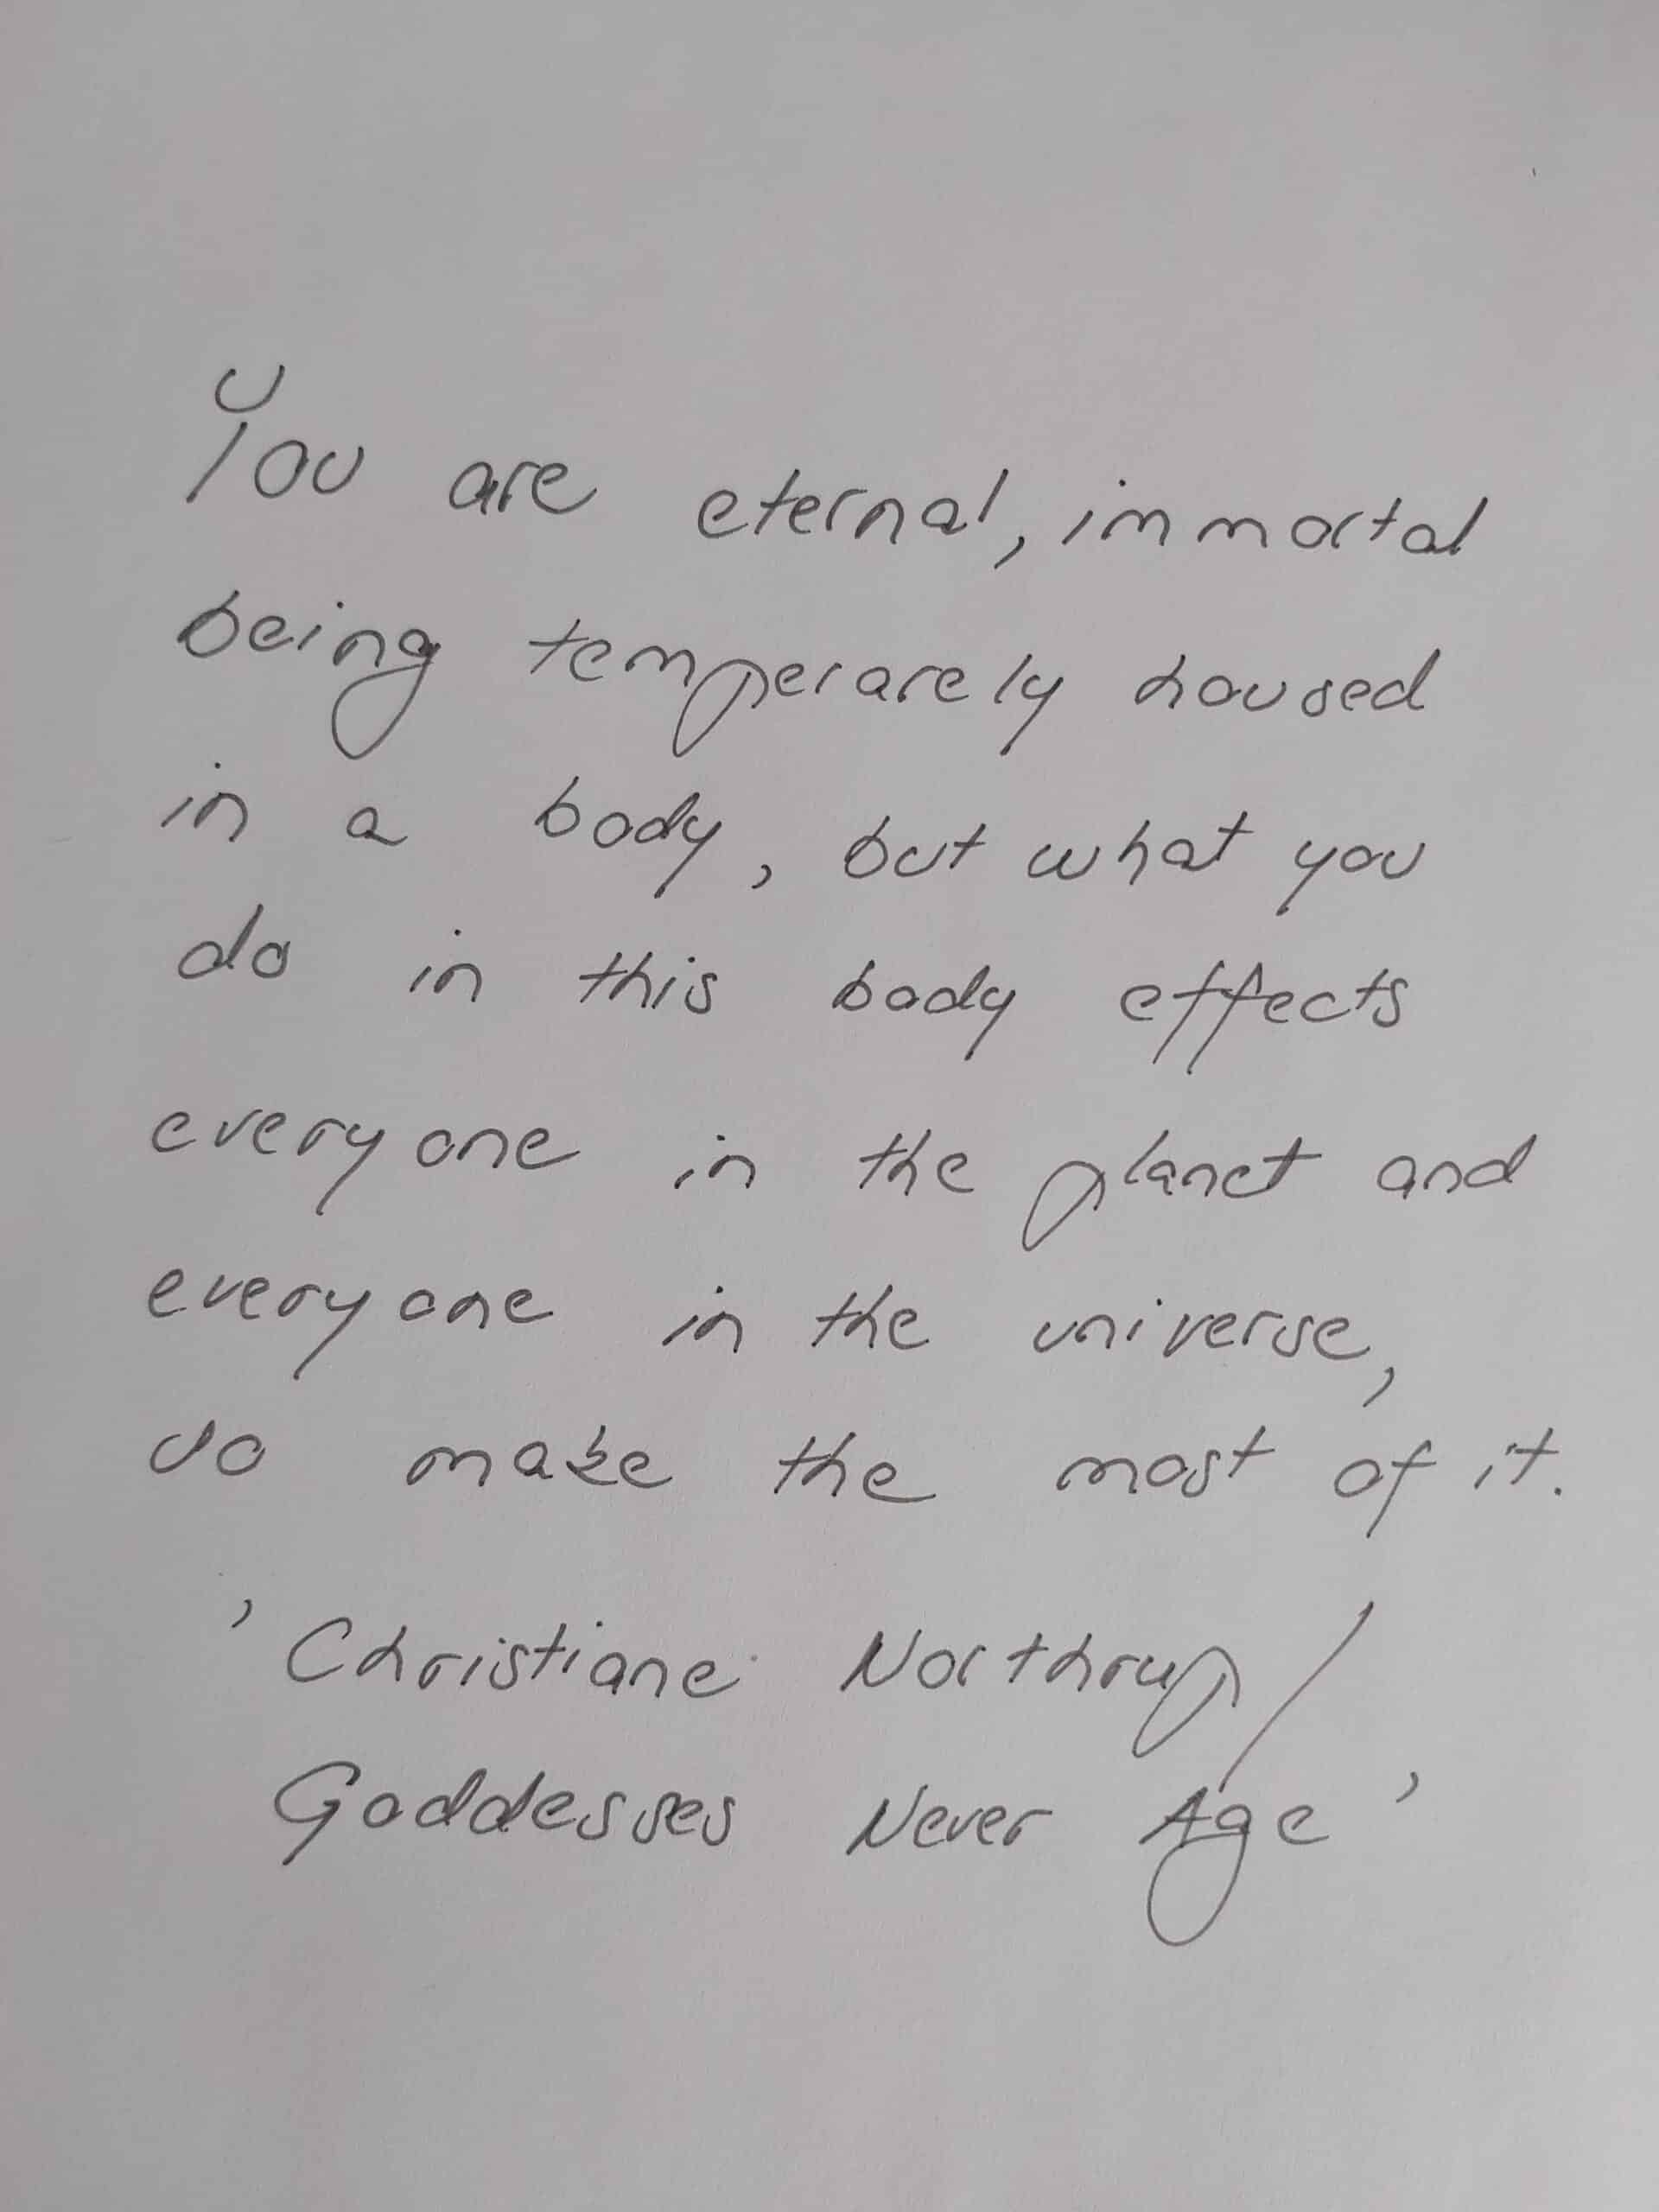 You are eternal, immortal
being temperarely housed
in a body, but what you
do in this body effects
everyone in the planet and
everyone in the universe,
so make the most of it.
'Christiane Northrup/
Goddesses Never Age'